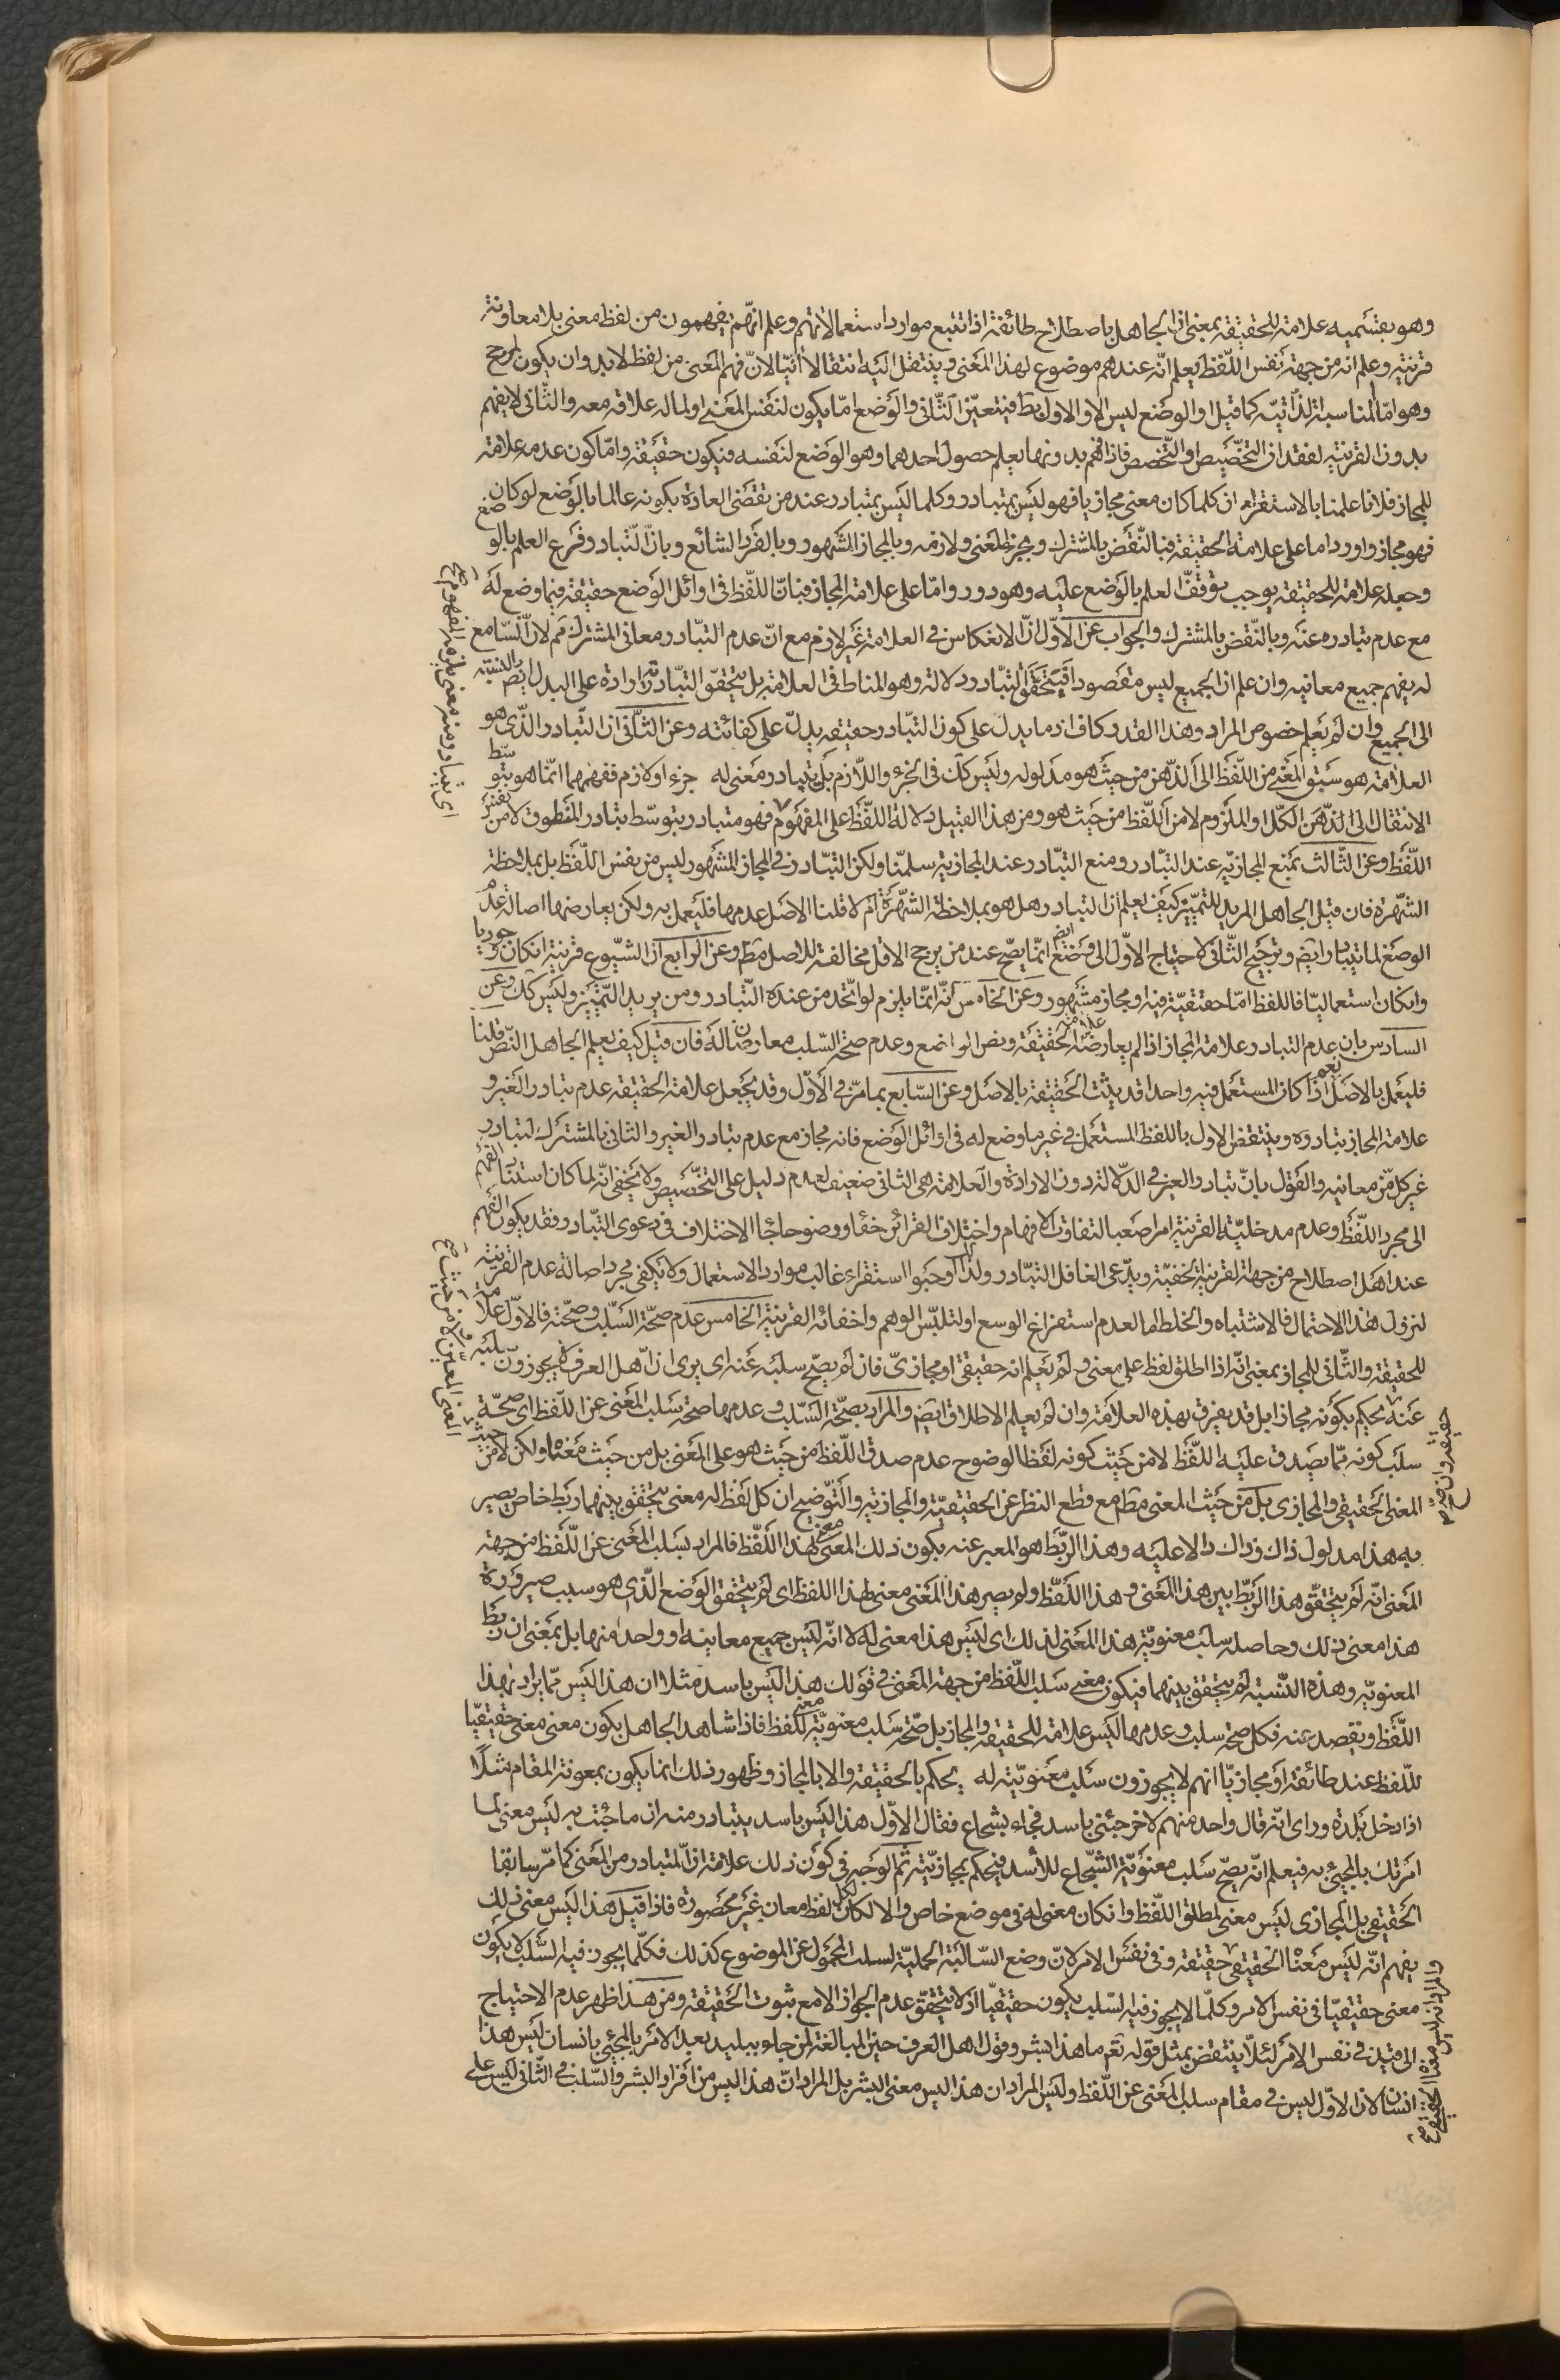 وهو بقسميه علامة للحقيقة بمعنى ان الجاهل باصطلاح طائفة اذا تتبع موارد استعمالاتهم وعلم انهم يفهمون من لفظ معنى بلا معاونة
قرينة وعلم انه من جهة نفس اللفظ يعلم انه عندهم موضوع لهذا المعنى وينتقل اليه انتقالا انيا لان فهم المعنى من لفظ لابد وان يكون لمرجح
وهو اما المناسبة الذاتية كما قيل او الوضع ليس الا والاول بط فيتعين الثاني والوضع اما يكون لنفس المعنى او لماله علاقة معه والثاني لا يفهم
بدون القرينة لفقدان التخصيص او التخصص فاذا فهم بدونها يعلم حصول احدهما وهو الوضع لنفسه فيكون حقيقة واما كون عدمه علامة
للمجاز فلانا علمنا بالاستقراء ان كلما كان معنى مجازيا فهو ليس بمتبادر وكلما ليس بمتبادر عند من تقتضى العادة بكونه عالما بالوضع لو كان
فهو مجاز واورد اما على علامة الحقيقة فبالنقض بالمشترك وبجزء المعنى ولازمه وبالمجاز المشهور وبالفرد الشائع وبان التبادر فرع العلم بالوضع
وجعله علامة للحقيقة يوجب توقف العلم بالوضع عليه وهو دور واما على علامة المجاز فبان اللفظ في اوائل الوضع حقيقة فيما وضع له
مع عدم تبادره عنه وبالنقض بالمشترك والجواب عن الاول ان الانعكاس في العلامة غير لازم مع ان عدم التبادر معاني المشترك مم لان السامع
له يفهم جميع معانيه وان علم ان الجميع ليس مقصودا فيتحقق التبادر دلالة وهو المناط في العلامة بل يتحقق التبادر ارادة على البدل بالنسبة
الى الجميع وان لم يعلم خصوص المراد وهذا القدر كاف اذ ما يدل على كون التبادر حقيقة يدل على كفائته وعن الثاني ان التبادر الذي هو
العلامة هو سبق المعنى من اللفظ الى الذهن من حيث هو مدلوله وليس كك في الجزء واللازم بل يتبادر معنى له جزء او لازم ففهمهما انما هو بتوسط
الانتقال الى الذهن الكل او الملزوم لا من اللفظ من حيث هو ومن هذا القبيل دلالة اللفظ على المفهوم فهو متبادر بتوسط تبادر المنطوق لا من نفس
اللفظ وعن الثالث بمنع المجازية عند التبادر ومنع التبادر عند المجازية سلمنا ولكن التبادر في المجاز المشهور ليس من نفس اللفظ بل بملاحظة
الشهرة فان قيل الجاهل المريد للتميز كيف يعلم ان التبادر هل هو بملاحظة الشهرة ام لا قلنا الاصل عدمها فليعمل به ولكن يعارضها اصالة عدم
الوضع لما يتبادر ايض وترجيح الثاني لاحتياج الاول الى وضع ايض انما يصح عند من يرجح الاقل مخالفة للاصل مطم وعن الرابع ان الشيوع قرينة ان كان وجوديا
وان كان استعماليا فاللفظ اما حقيقة فيه او مجاز مشهور وعن الخامس انه انما يلزم لو اتحد من عنده التبادر ومن يريد التميز وليس كك وعن
السادس بان عدم التبادر علامة المجاز اذا لم يعارضه علامة الحقيقة ونص الواضع وعدم صحة السلب معارضان له فان قيل كيف يعلم الجاهل النص قلنا
فليعمل بالاصل نعم اذا كان المستعمل فيه واحدا قد يثبت الحقيقة بالاصل وعن السابع بما مر في الاول وقد يجعل علامة الحقيقة عدم تبادر الغير و
علامة المجاز تبادره وينتقض الاول باللفظ المستعمل في غير ما وضع له في اوائل الوضع فانه مجاز مع عدم تبادر الغير والثاني بالمشترك لتبادر
غير كل من معانيه والقول بان تبادر الغير في الدلالة دون الارادة والعلامة هي الثاني ضعيف لعدم دليل على التخصيص ولا يخفى انه لما كان استناد الفهم
الى مجرد اللفظ وعدم مدخلية القرينة امرا صعبا لتفاوت الافهام واختلاف القرائن خفاء ووضوحا جاء الاختلاف في دعوى التبادر فقد يكون الفهم
عند اهل اصطلاح من جهة القرينة الخفية ويدعى الغافل التبادر ولذا اوجبوا استقراء غالب موارد الاستعمال ولا يكفي مجرد اصالة عدم القرينة
لنزول هذا الاحتمال فالاشتباه والخلط اما لعدم استفراغ الوسع او لتلبس الوهم واخفائه القرينة الخامس عدم صحة السلب وصحته فالاول علامة
للحقيقة والثاني للمجاز بمعنى انه اذا اطلق لفظ على معنى ولم يعلم انه حقيقي او مجازي فان لم يصح سلبه عنه اى يرى ان اهل العرف لا يجوزون سلبه
عنه يحكم بكونه مجازا بل قد يعرف بهذه العلامة وان لم يعلم الاطلاق ايض والمراد بصحة السلب وعدمها صحة سلب المعنى عن اللفظ اى صحة
سلب كونه مما يصدق عليه اللفظ لا من حيث كونه لفظا لوضوح عدم صدق اللفظ من حيث هو على المعنى بل من حيث معناه ولكن لا من حيث
المعنى الحقيقي والمجازي بل من حيث المعنى مطم مع قطع النظر عن الحقيقية والمجازية والتوضيح ان كل لفظ له معنى يتحقق بينهما ربط خاص يصير
به هذا مدلول ذاك وذاك دالا عليه وهذا الربط هو المعبر عنه بكون ذلك المعنى معنى لهذا اللفظ فالمراد بسلب المعنى عن اللفظ من جهة
المعنى انه لم يتحقق هذا الربط بين هذا المعنى و هذا اللفظ ولم يصر هذا المعنى معنى لهذا اللفظ اى لم يتحقق الوضع الذي هو سبب صيرورة
هذا معنى ذلك وحاصله سلب معنوية هذا المعنى لذلك اى ليس هذا معنى له لا انه ليس جميع معانيه او واحدا منها بل بمعنى ان ربط
المعنوية وهذه النسبة لم يتحقق بينهما فيكون معنى سلب اللفظ من جهة المعنى في قولك هذا ليس باسد مثلا ان هذا ليس مما يراد بهذا
اللفظ ويقصد عنه فكل صحة سلب وعدمها ليس علامة للحقيقة والمجاز بل صحة سلب معنوية معنى للفظ فاذا شاهد الجاهل بكون معنى معنى حقيقيا
للفظ عند طائفة او مجازيا انهم لا يجوزون سلب معنويته له يحكم بالحقيقة والا بالمجاز وظهور ذلك انما يكون بمعونة المقام مثلا
اذا دخل بلدة وراى انه قال واحد منهم لاخر جئني باسد فجاء بشجاع فقال الاول هذا ليس باسد يتبادر منه ان ما جئت به ليس معنى لما
امرتك بالمجيئ به فيعلم انه يصح سلب معنوية الشجاع للأسد فيحكم بمجازيته ثم الوجه في كون ذلك علامة ان المتبادر من المعنى كما مر سابقا
الحقيقي بل المجازي ليس معنى لمطلق اللفظ وان كان معنى له في موضع خاص والا لكان لكل لفظ معان غير محصورة فاذا قيل هذا ليس معنى ذلك
يفهم انه ليس معناه الحقيقي حقيقة وفي نفس الامر لان وضع السالبة الحملية لسلب المحمول عن الموضوع كذلك فكلما يجوز فيه السلب لا يكون
معنى حقيقيا في نفس الامر وكلما لا يجوز فيه السلب يكون حقيقيا اذ لا يتحقق عدم الجواز الا مع ثبوت الحقيقة ومن هذا ظهر عدم الاحتياج
الى قيد في نفس الامر لئلا ينتقض بمثل قوله تعم ما هذا بشر وقول اهل العرف حين المبالغة لمن جاء ببليد بعد الامر بالمجيئ بانسان ليس هذا
انسان لان الاول ليس في مقام سلب المعنى عن اللفظ وليس المراد ان هذا ليس معنى البشر بل المراد ان هذا ليس من افراد البشر والسلب في الثاني ليس على